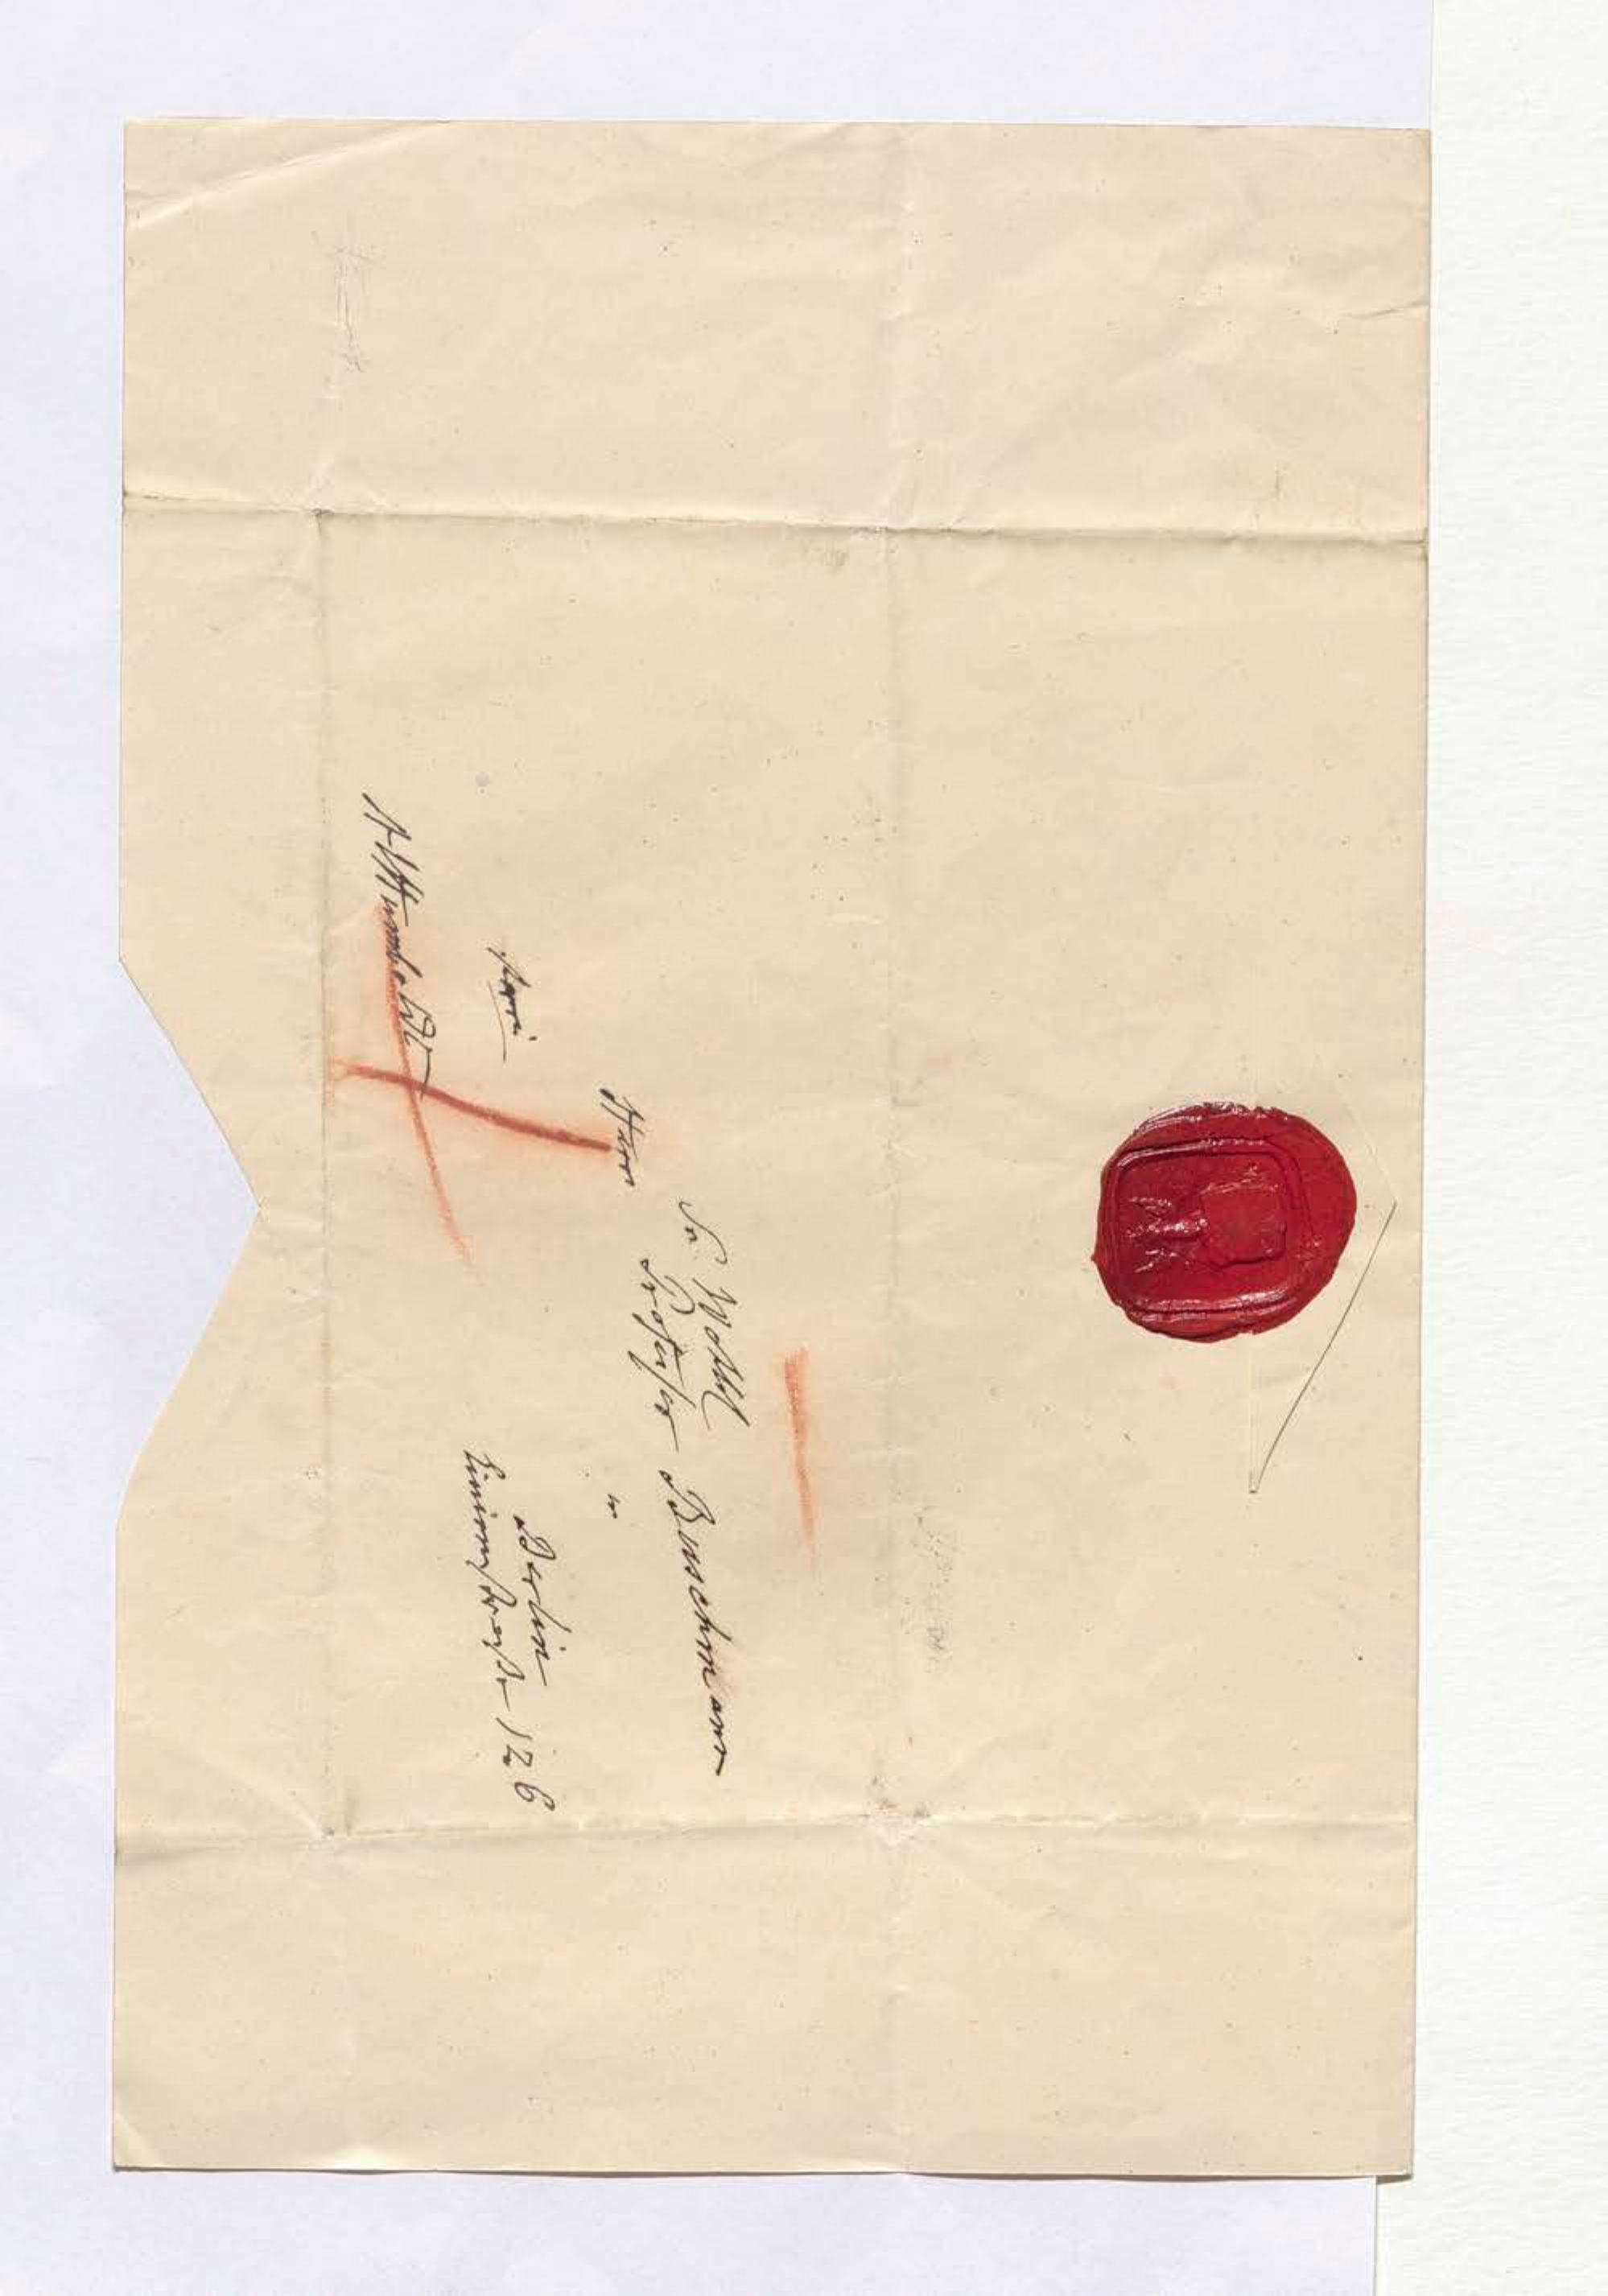 Sr. Wohl
Herrn Professor Buschmann
in
Berlin
Linienstraße 126
frei
AvHumboldt